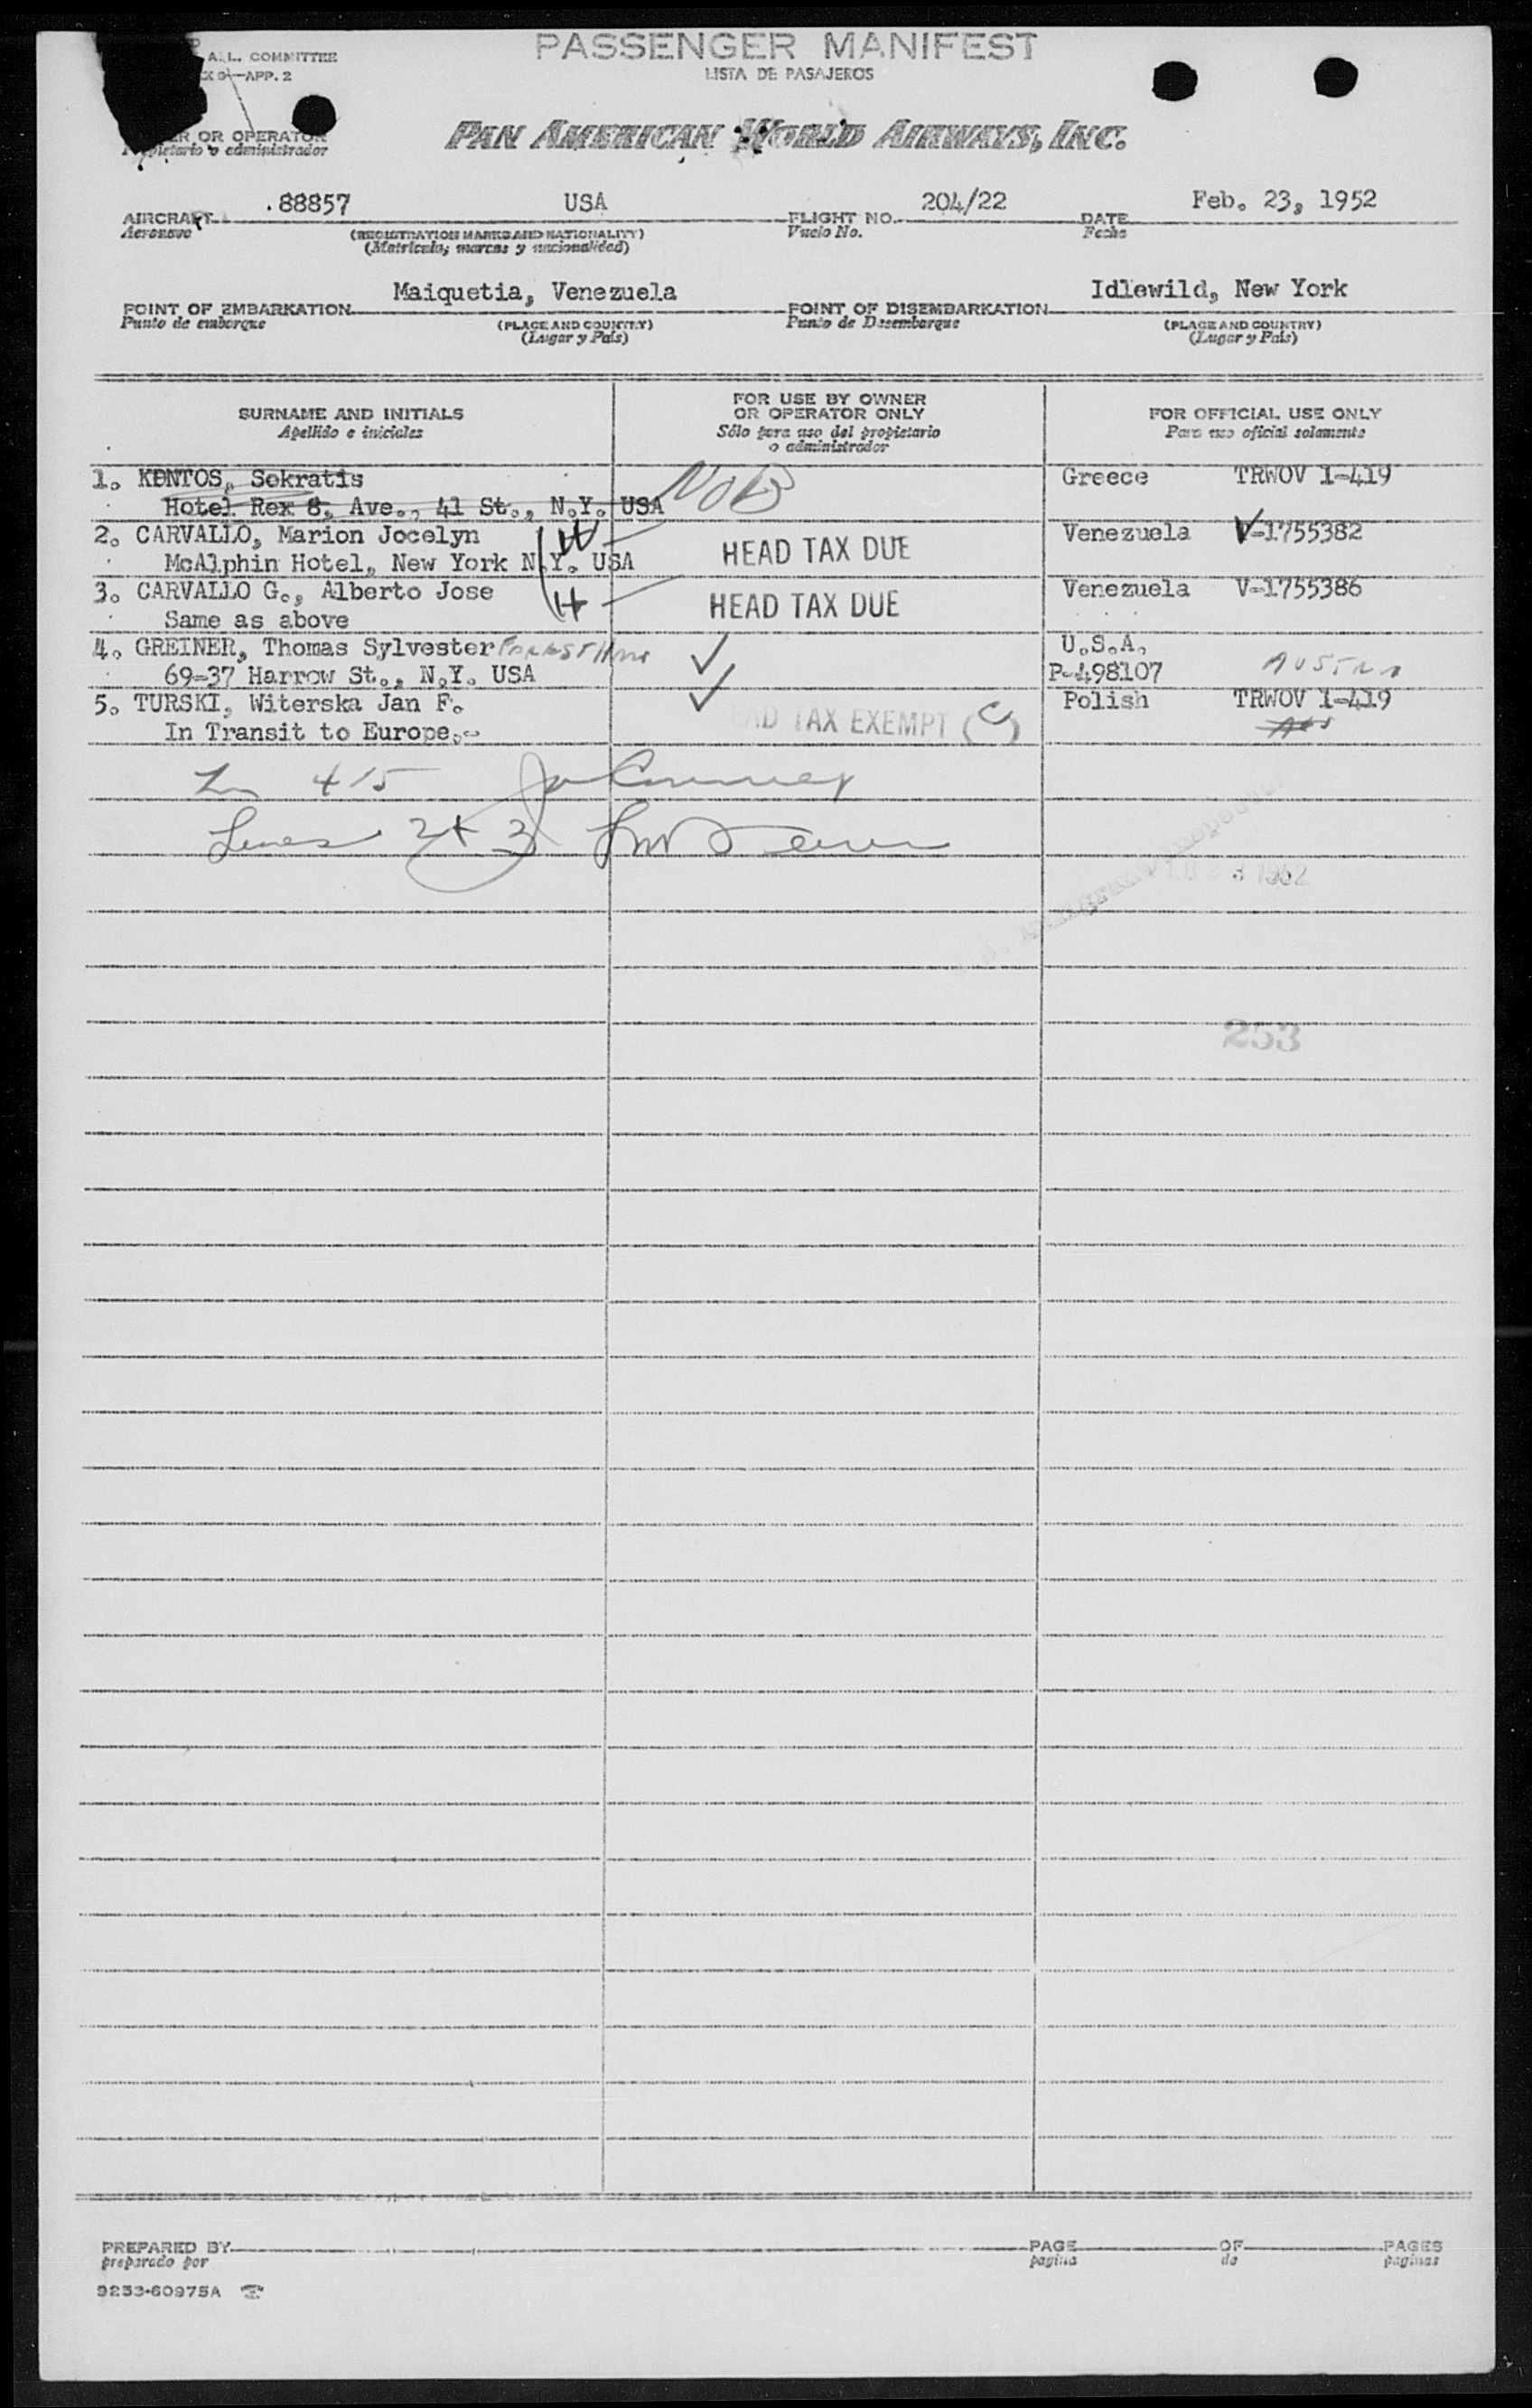 A.L. COMMITTEE
APP. 2
PASSENGER MANIFEST
LISTA DE PASAJEROS
OR OPERATOR
o administrador
PAN AMERICAN WORLD AIRWAYS, INC.
AIRCRAFT 88857 USA FLIGHT NO. 204/22 DATE Feb. 23, 1952
Aeronave (REGISTRATION MARKS AND NATIONALITY) Vuelo No. Fecha
(Matricula, marcas y nacionalidad)
POINT OF EMBARKATION Maiquetia, Venezuela POINT OF DISEMBARKATION Idlewild, New York
Punto de embarque (PLACE AND COUNTRY) Punto de Desembarque (PLACE AND COUNTRY)
(Lugar y País) (Lugar y País)
SURNAME AND INITIALS
Apellido e iniciales
FOR USE BY OWNER
OR OPERATOR ONLY
Sólo para uso del propietario
o administrador
FOR OFFICIAL USE ONLY
Para uso oficial solamente
1. KONTOS, Sokratis Greece TRWOV I-419
Hotel Rex 8, Ave., 41 St., N.Y. USA NOB
2. CARVALLO, Marion Jocelyn Venezuela V-1755382
McAlphin Hotel, New York N.Y. USA HEAD TAX DUE
3. CARVALLO G., Alberto Jose Venezuela V-1755386
Same as above HEAD TAX DUE
4. GREINER, Thomas Sylvester U.S.A.
69-37 Harrow St., N.Y. USA P-498107
5. TURSKI, Witerska Jan F. Polish TRWOV I-419
In Transit to Europe.- TAX EXEMPT (C)
4 15
Lines 2 + 3
253
PREPARED BY PAGE OF PAGES
preparado por pagina de paginas
9253-60975A